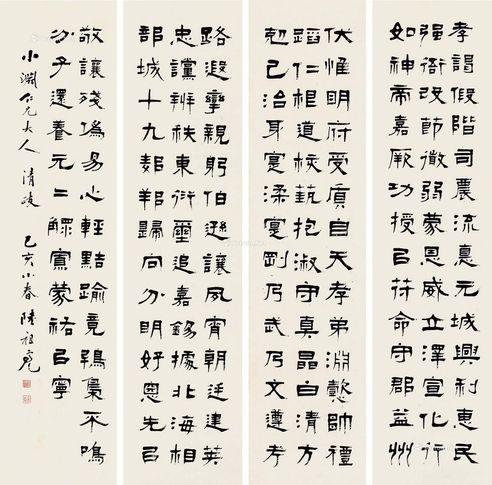 孝謁假階司農流惠元城興利惠民
強衙改節微弱蒙恩威立澤宣化行
如神帝嘉厥功授以符命守郡益州
伏惟明府受質自天孝弟淵懿帥禮
蹈仁根道核蓺抱淑守真皛白清方
剋己治身寔柔寔剛乃武乃文遵考
路遐攣親躬作遜讓夙宵朝廷建英
忠讜辨秩東衍璽追嘉錫據北海相
部城十九鄰邦歸向分明好惡先以
敬讓殘偽易心輕黠踰竟鴞梟不鳴
分子還養元二鰥寡蒙祐以寧
小淵仁兄大人 清政 己亥小春 陸祖